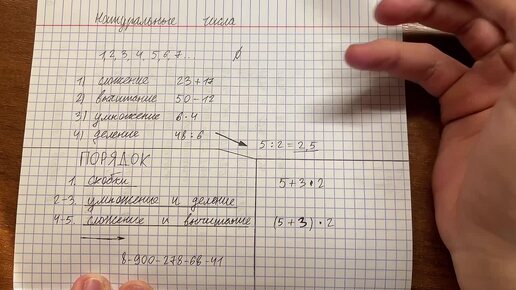 Натуральные числа
1,2,3,4,5,6,7... 0
1) сложение 23+17
2) вычитание 50-12
3) умножение 6·4
4) деление 48:6
5:2=2,5
ПОРЯДОК
1. скобки
5+3·2
2-3. умножение и деление
4-5. сложение и вычитание
(5+3)·2
8-900-278-68-41